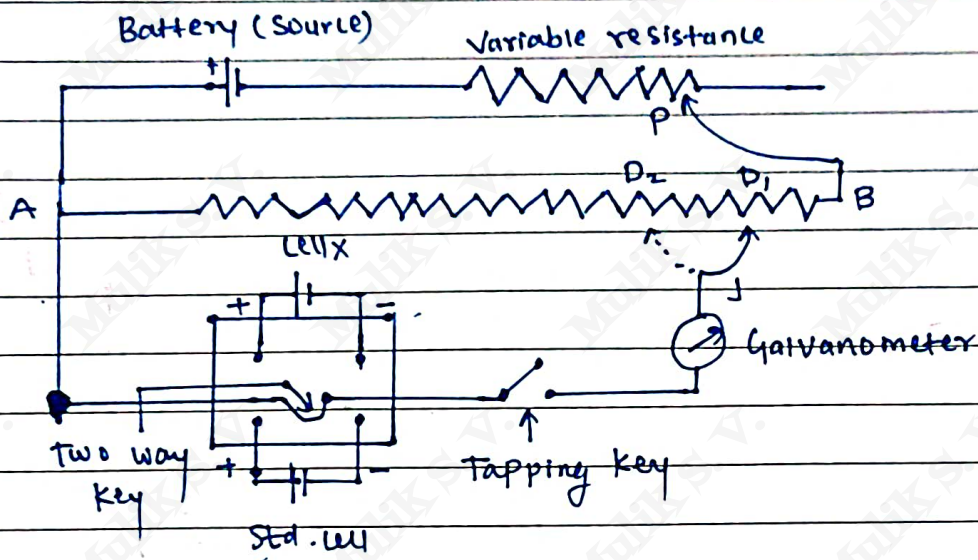 Battery (Source)
Variable resistance
+
P
D₂ D₁
A B
Cell X
+ -
J
Galvanometer
Two way
Key
+ -
Tapping Key
Std. Cell
Mulik S. V.